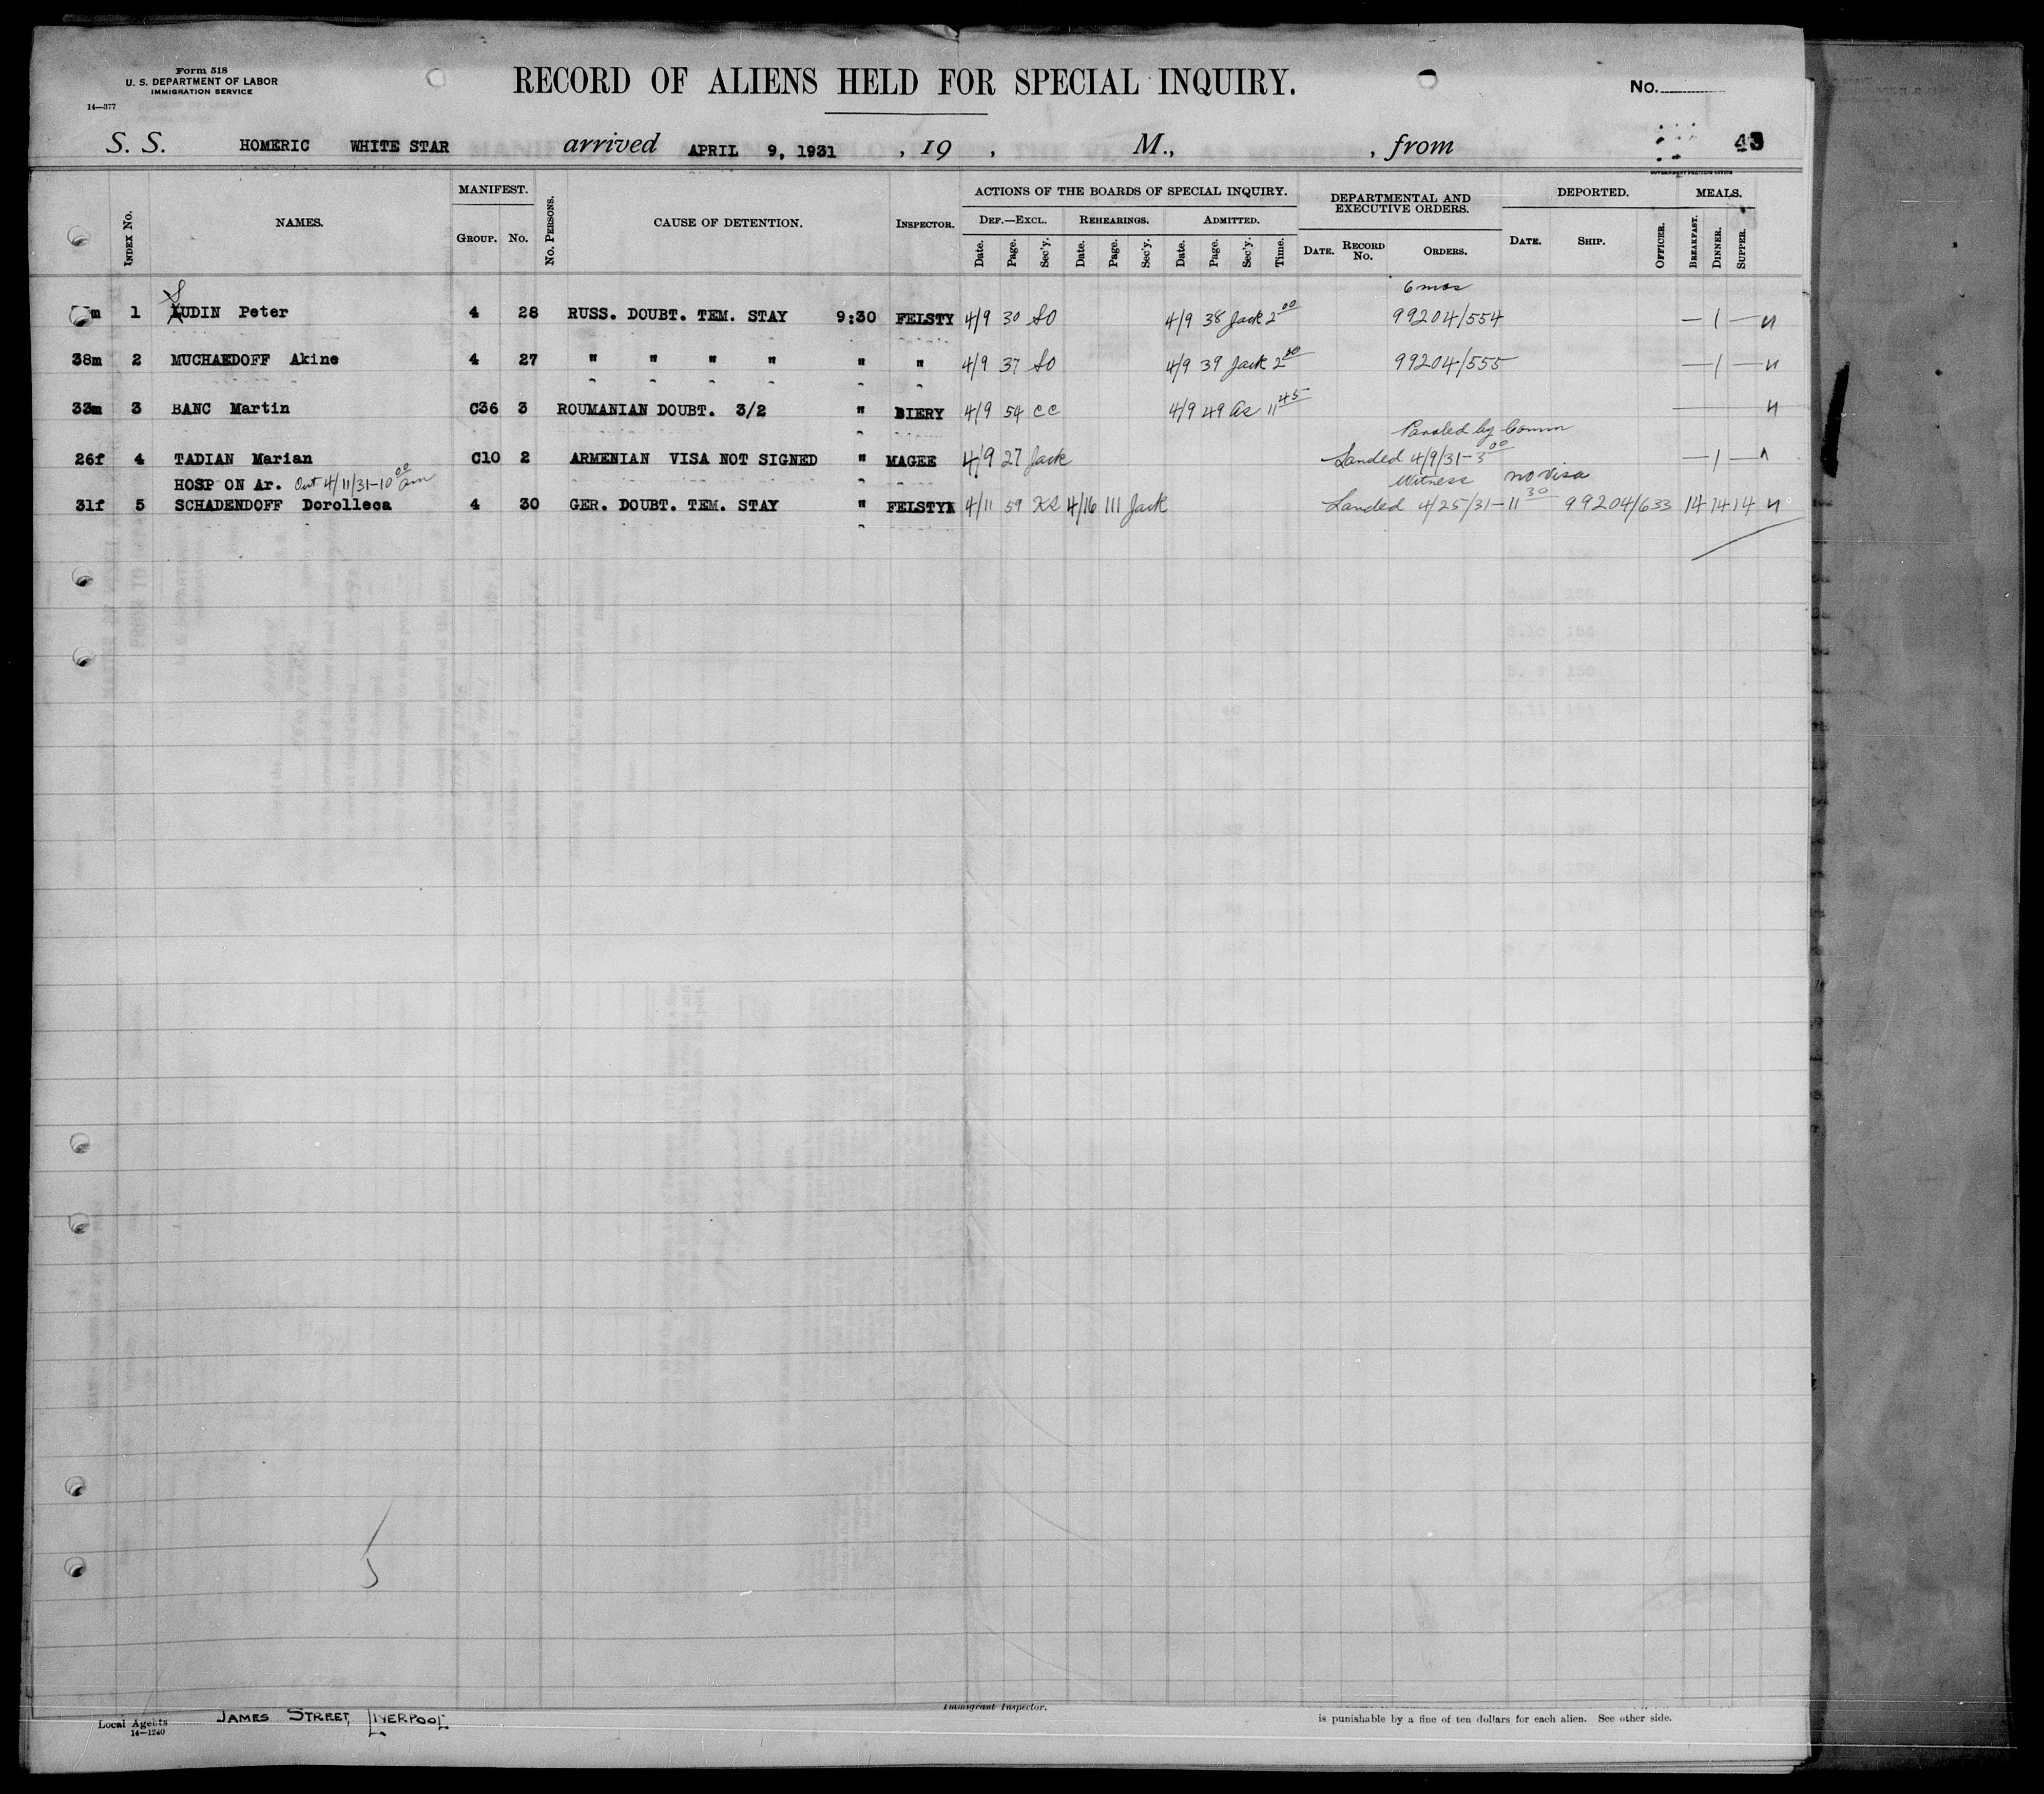 Form 518
U. S. DEPARTMENT OF LABOR
IMMIGRATION SERVICE
14—377
RECORD OF ALIENS HELD FOR SPECIAL INQUIRY.
No.
S. S. HOMERIC WHITE STAR arrived APRIL 9, 1931 , 19 , M., , from 43
GOVERNMENT PRINTING OFFICE
INDEX No. NAMES. MANIFEST. GROUP. No. No. PERSONS. CAUSE OF DETENTION. INSPECTOR. ACTIONS OF THE BOARDS OF SPECIAL INQUIRY. DEPARTMENTAL AND EXECUTIVE ORDERS. DEPORTED. MEALS.
DEF.—EXCL. REHEARINGS. ADMITTED.
Date. Page. Sec'y. Date. Page. Sec'y. Date. Page. Sec'y. Time. DATE. RECORD No. ORDERS. DATE. SHIP. OFFICER. BREAKFAST. DINNER. SUPPER.
6 mos
m 1 UDIN Peter 4 28 RUSS. DOUBT. TEM. STAY 9:30 FELSTY 4/9 30 SO 4/9 38 Jack 2 00 99204/554 — 1 —
38m 2 MUCHAEDOFF Akine 4 27 " " " " " " 4/9 37 SO 4/9 39 Jack 2 00 99204/555 — 1 —
33m 3 BANC Martin C36 3 ROUMANIAN DOUBT. 3/2 " BIERY 4/9 54 CC 4/9 49 11 45
Paroled by Comm
26f 4 TADIAN Marian C10 2 ARMENIAN VISA NOT SIGNED " MAGEE 4/9 27 Jack Landed 4/9/31-3 00 — 1 —
HOSP ON Ar. Out 4/11/31-10 00 am Witness no visa
31f 5 SCHADENDOFF Dorolleca 4 30 GER. DOUBT. TEM. STAY " FELSTY 4/11 59 KS 4/16 111 Jack Landed 4/25/31-11 30 99204/633 14 14 14
5
Immigrant Inspector.
Local Agents JAMES STREET, LIVERPOOL
14—1240
is punishable by a fine of ten dollars for each alien. See other side.